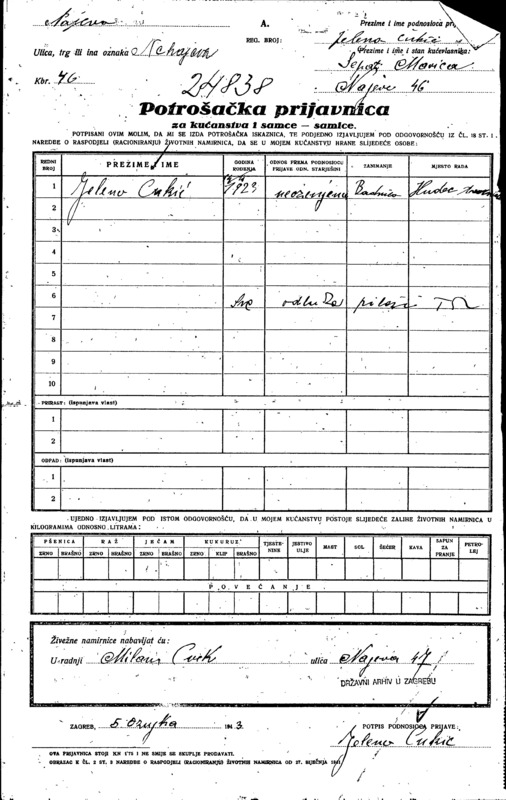 A.
Prezime i ime podnosioca pri
REG. BROJ:
Jelena Cukić
Ulica, trg ili ina oznaka
Prezime i ime i stan kućevlasnika:
Marica
Kbr. 46
24838
46
Potrošačka prijavnica
za kućanstva i samce — samice.
POTPISANI OVIM MOLIM, DA MI SE IZDA POTROŠAČKA ISKAZNICA, TE PODJEDNO IZJAVLJUJEM POD ODGOVORNOŠĆU IZ ČL. 18 ST. 1.
NAREDBE O RASPODJELI (RACIONIRANJU) ŽIVOTNIH NAMIRNICA, DA SE U MOJEM KUĆANSTVU HRANE SLIJEDEĆE OSOBE:
REDNI BROJ PREZIME I IME GODINA ROĐENJA ODNOS PREMA PODNOSIOCU PRIJAVE ODN. STARJEŠINI ZANIMANJE MJESTO RADA
1 Jelena Cukić 1923 Hudec
2
3
4
5
6
7
8
9
10
PRIRAST: (Ispunjava vlast)
1
2
OTPAD: (Ispunjava vlast)
1
2
UJEDNO IZJAVLJUJEM POD ISTOM ODGOVORNOŠĆU, DA U MOJEM KUĆANSTVU POSTOJE SLIJEDEĆE ZALIHE ŽIVOTNIH NAMIRNICA U
KILOGRAMIMA ODNOSNO LITRAMA:
PŠENICA RAŽ JEČAM KUKURUZ TJESTENINE JESTIVO ULJE MAST SOL ŠEĆER KAVA SAPUN ZA PRANJE PETROLEJ
ZRNO BRAŠNO ZRNO BRAŠNO ZRNO BRAŠNO ZRNO KLIP BRAŠNO
POVEĆANJE
Živežne namirnice nabavljat ću:
U radnji Milan Cvek ulica 47
DRŽAVNI ARHIV U ZAGREBU
ZAGREB, 5. ožujka 1943
POTPIS PODNOSIOCA PRIJAVE:
Jelena Cukić
OVA PRIJAVNICA STOJI KN 1.75 I NE SMIJE SE SKUPLJE PRODAVATI.
OBRAZAC K ČL. 2 ST. 2 NAREDBE O RASPODJELI (RACIONIRANJU) ŽIVOTNIH NAMIRNICA OD 27. SIJEČNJA 1941